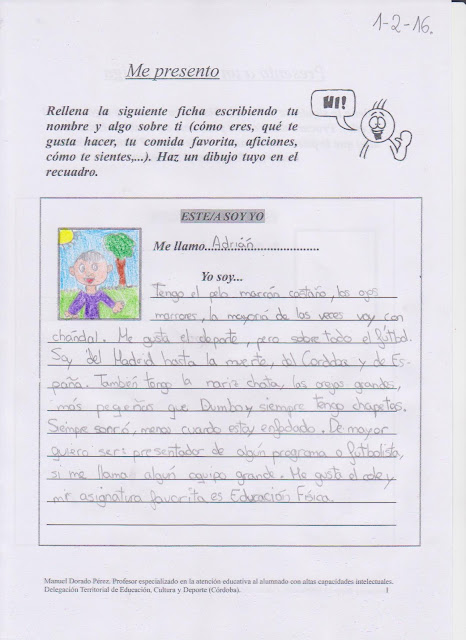 1-2-16.
Me presento
HI!
Rellena la siguiente ficha escribiendo tu
nombre y algo sobre ti (cómo eres, qué te
gusta hacer, tu comida favorita, aficiones,
cómo te sientes,...). Haz un dibujo tuyo en el
recuadro.
ESTE/A SOY YO
Me llamo.... Adrián
Yo soy...
Tengo el pelo marrón castaño, los ojos
marrones, la mayoría de las veces voy con
chándal. Me gusta el deporte, pero sobre todo el fútbol.
Soy del Madrid hasta la muerte, del Córdoba y de Es-
paña. También tengo la nariz chata, las orejas grandes,
más pequeñas que Dumbo y siempre tengo chapetas.
Siempre sonrío, menos cuando estoy enfadado. De mayor
quiero ser: presentador de algún programa o futbolista,
si me llama algún equipo grande. Me gusta el y
mi asignatura favorita es Educación Física.
Manuel Dorado Pérez. Profesor especializado en la atención educativa al alumnado con altas capacidades intelectuales.
Delegación Territorial de Educación, Cultura y Deporte (Córdoba).
1